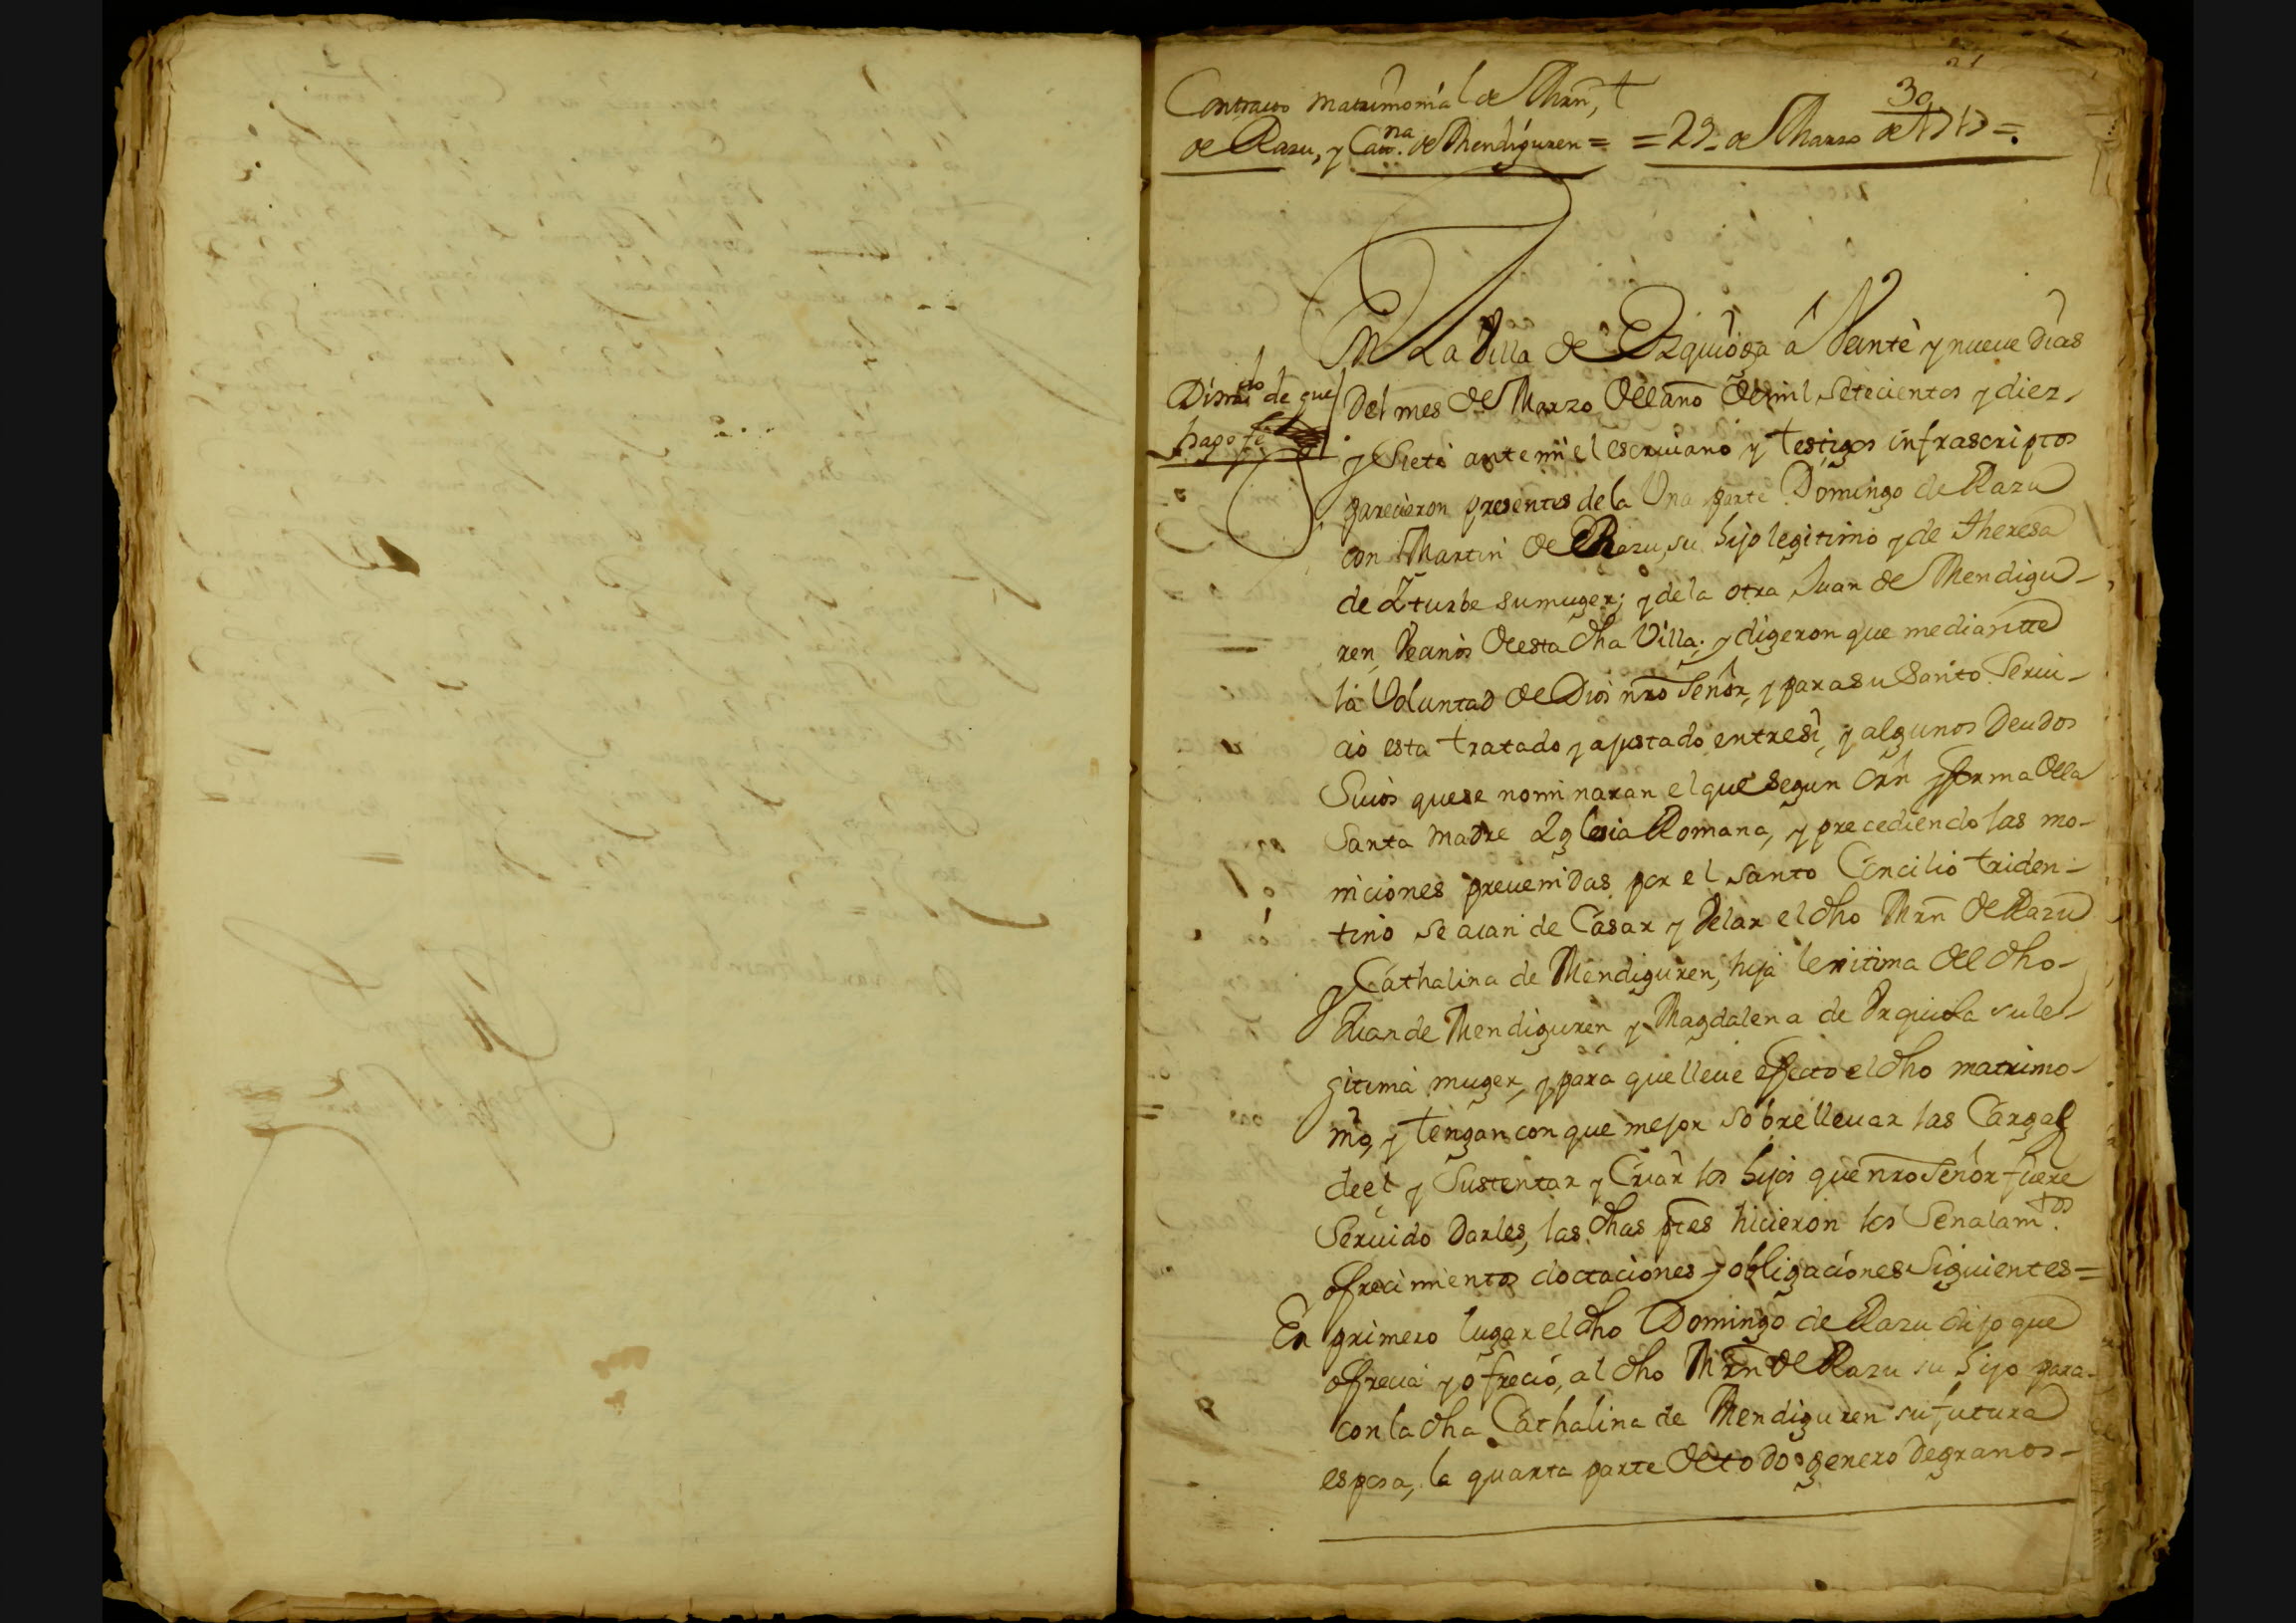 30
Contracto matrimonial de Mrn,
de Razu, y Cat.na de Mendiguren = = 29 de Marzo de 1717 =
En La Villa de Ezquioga â Veinte y nueue dias
Di sin de que
hago fe
Del mes de Marzo del año de mil setecientos y diez
y siete ante mi el escriuano y testigos infrascriptos
parecieron presentes de la Una parte Domingo de Razu
con Martin de Razu, su hijo legitimo y de Theresa
de Yturbe su muger; y de la otra Juan de Mendigu-
ren, Vecinos de esta dha Villa; y digeron que mediantte
la Voluntad de Dios nro Señor, y para su Santo Serui-
cio esta tratado y ajustado entre si, y algunos Deudos
Suios que se nominaran el que segun orn y forma de la
Santa Madre Yglesia Romana, y precediendo las mo-
niciones preuenidas por el santo Concilio triden-
tino se aian de Casar y Velar el dho Mrn de Razu
y Cathalina de Mendiguren, hija lexitima del dho
Juan de Mendiguren y Magdalena de Urquiola su le-
gitima muger, y para que lleue efecto el dho matrimo-
nio, y tengan con que mejor sobrelleuar las Cargas
de el y Sustentar y Criar los hijos que nro Señor fuere
Seruido Darles, las dhas ptes hicieron los Señalam.tos
ofrecimientos doctaciones y obligaciones Siguientes =
En primero lugar el dho Domingo de Razu dijo que
ofrecia y ofrecio, al dho Mrn de Razu su hijo para
con la dha Cathalina de Mendiguren su futura
esposa, la quarta parte de todo genero de granos -